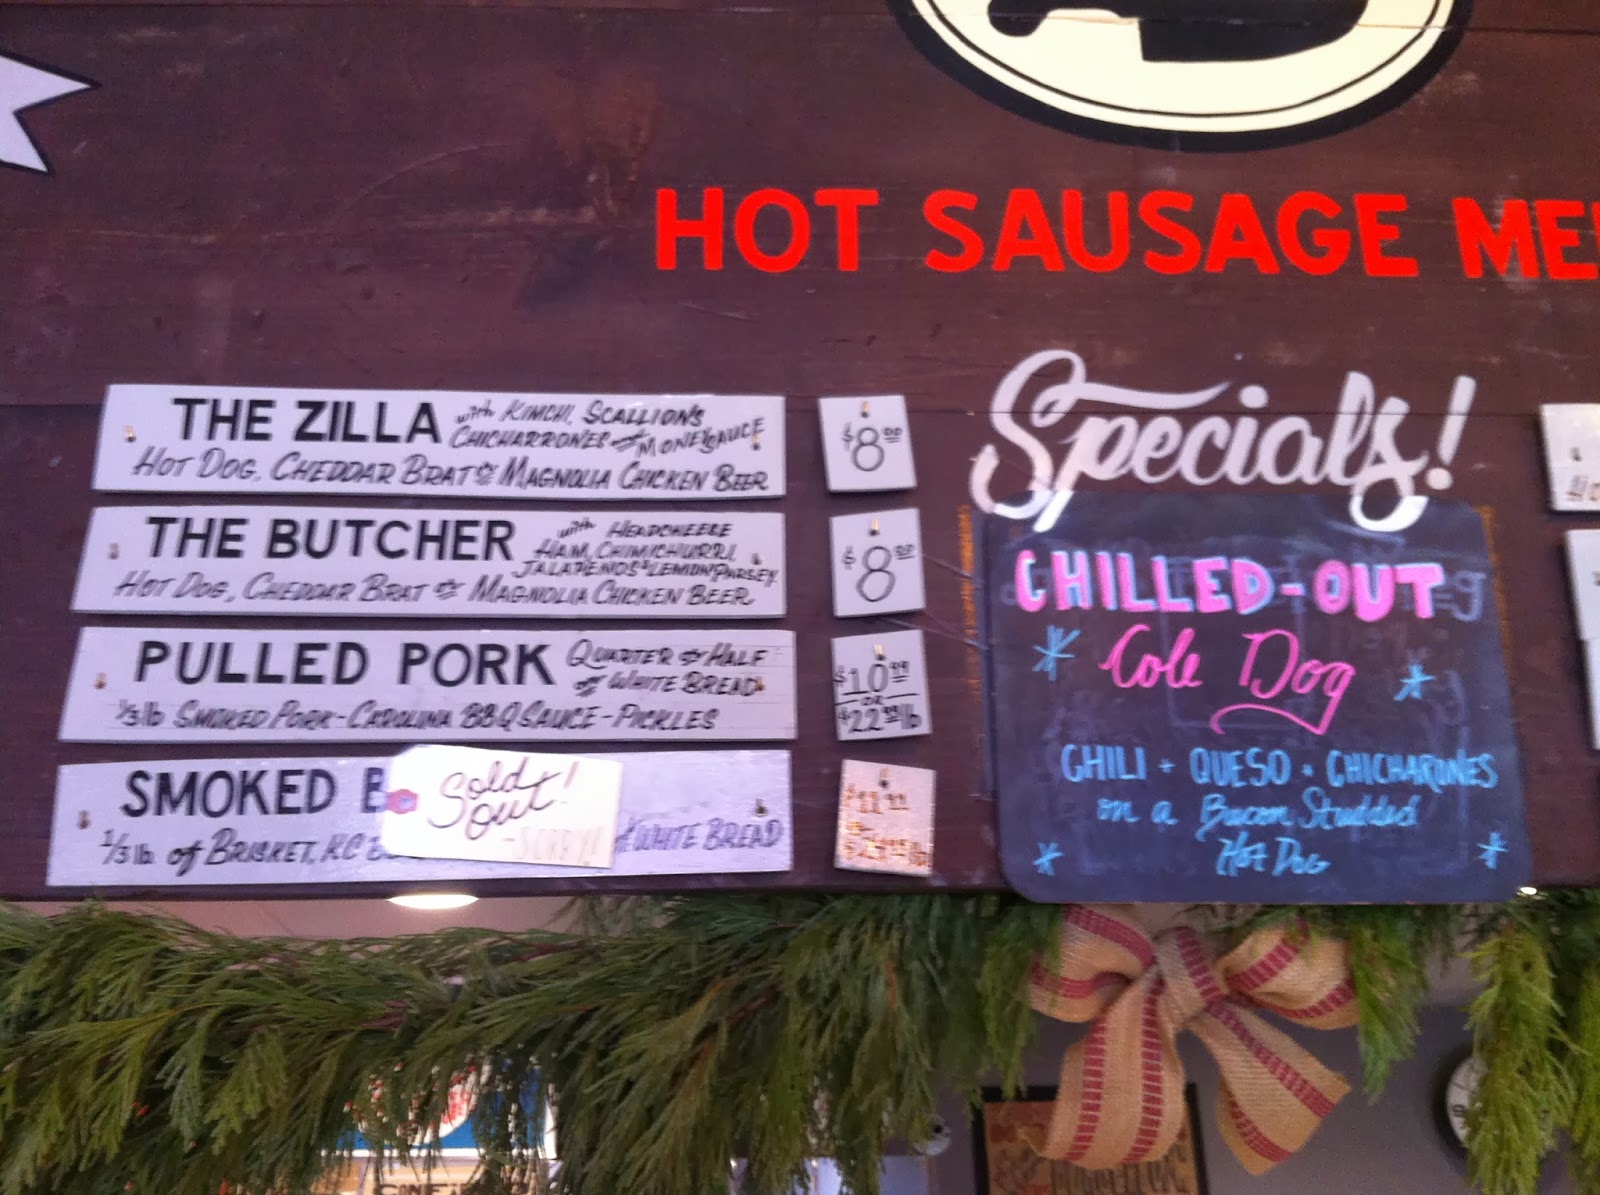 HOT SAUSAGE ME
THE ZILLA with KIMCHI, SCALLIONS
CHICHARRONES and MONEY SAUCE
HOT DOG, CHEDDAR BRAT or MAGNOLIA CHICKEN BEER
$8.00
THE BUTCHER with HEADCHEESE
HAM, CHIMICHURRI,
JALAPENOS & LEMON PARSLEY
HOT DOG, CHEDDAR BRAT or MAGNOLIA CHICKEN BEER
$8.00
PULLED PORK QUARTER or HALF
on WHITE BREAD
1/3 lb SMOKED PORK - CAROLINA BBQ SAUCE - PICKLES
$10.99
OR
$22.99 lb
SMOKED B
1/3 lb. of BRISKET, KC B WHITE BREAD
Sold
out!
-SORRY!!
Specials!
CHILLED-OUT
Cole Dog
CHILI + QUESO + CHICHARONES
on a Bacon Studded
Hot Dog